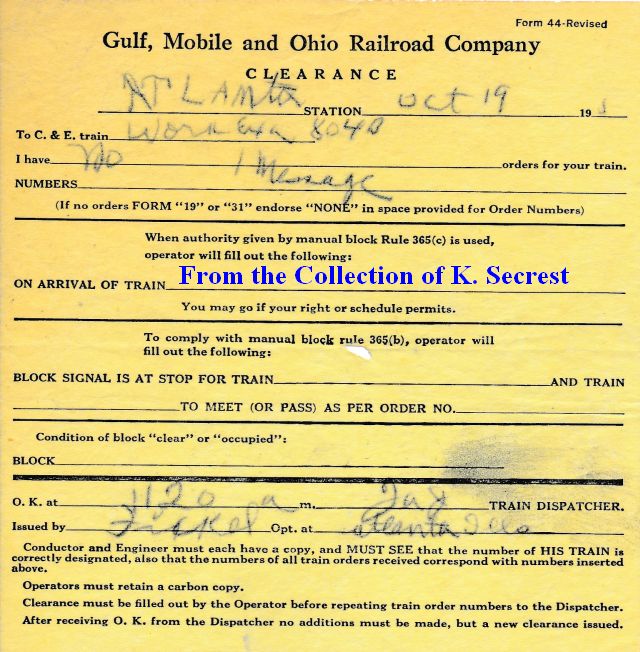 Form 44-Revised
Gulf, Mobile and Ohio Railroad Company
CLEARANCE
ATLANTA STATION Oct 19 19
To C. & E. train Work Exa 8040
I have No 1 Message orders for your train.
NUMBERS
(If no orders FORM "19" or "31" endorse "NONE" in space provided for Order Numbers)
When authority given by manual block Rule 365(c) is used,
operator will fill out the following:
ON ARRIVAL OF TRAIN From the Collection of K. Secrest
You may go if your right or schedule permits.
To comply with manual block rule 365(b), operator will
fill out the following:
BLOCK SIGNAL IS AT STOP FOR TRAIN AND TRAIN
TO MEET (OR PASS) AS PER ORDER NO.
Condition of block "clear" or "occupied":
BLOCK
O. K. at 1120 a m. TRAIN DISPATCHER.
Issued by Opt. at Atlanta Ills
Conductor and Engineer must each have a copy, and MUST SEE that the number of HIS TRAIN is
correctly designated, also that the numbers of all train orders received correspond with numbers inserted
above.
Operators must retain a carbon copy.
Clearance must be filled out by the Operator before repeating train order numbers to the Dispatcher.
After receiving O. K. from the Dispatcher no additions must be made, but a new clearance issued.